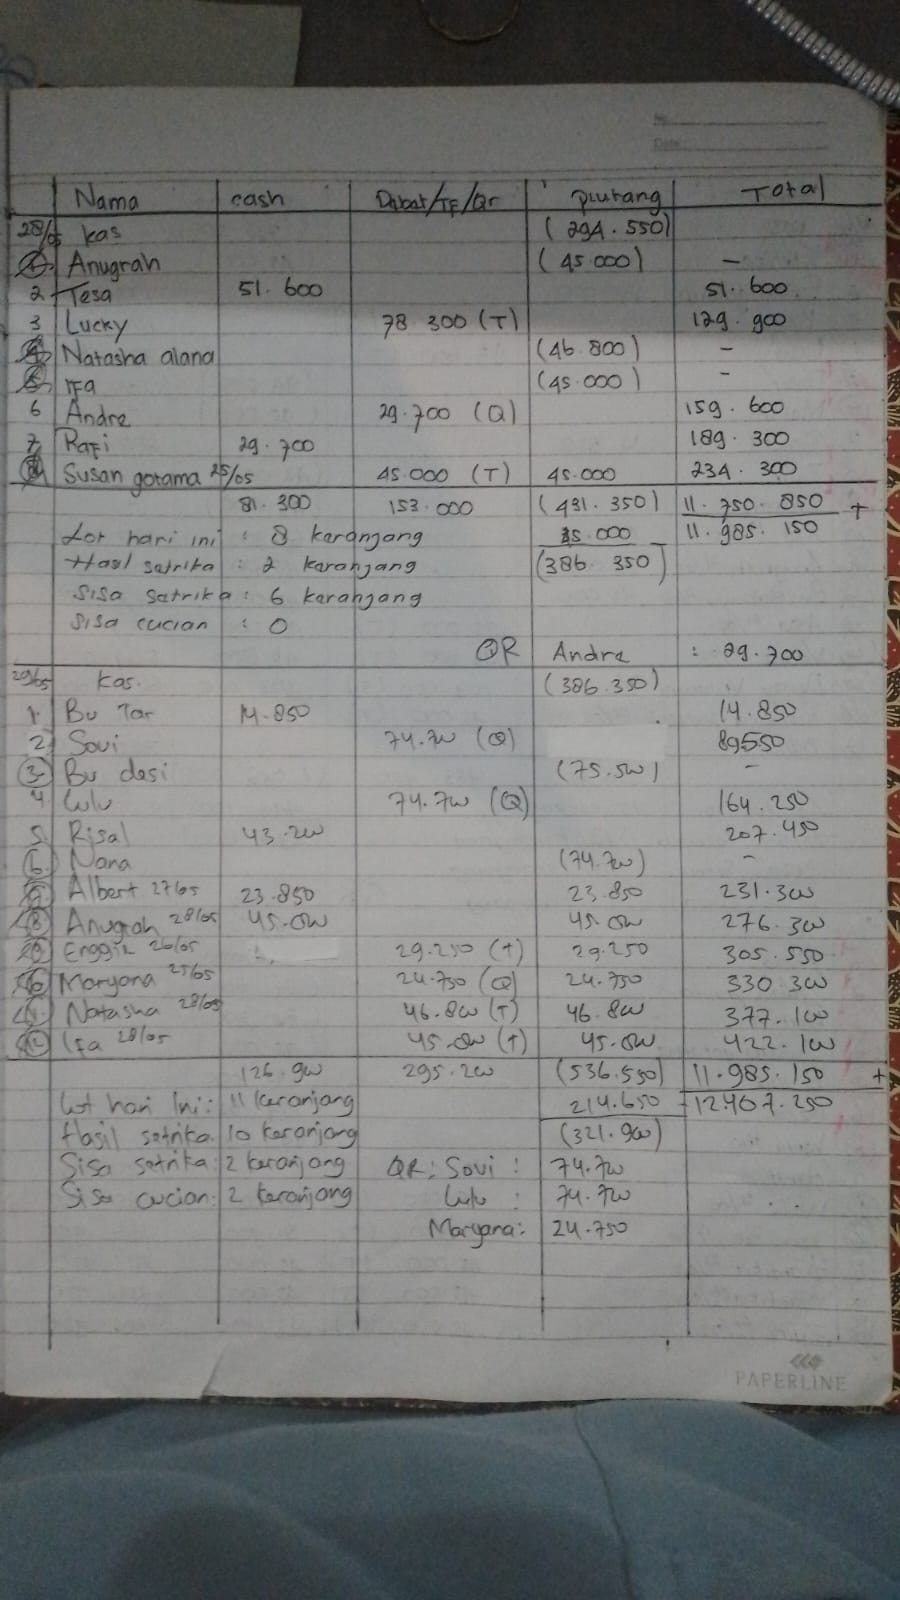 No.
Date
Nama cash Debat/TF/Qr piutang Total
28/05 kas (294.550)
1 Anugrah (45.000) -
2 Tesa 51.600 51.600
3 Lucky 78.300 (T) 129.900
4 Natasha alana (46.800) -
5 Ifa (45.000) -
6 Andre 29.700 (Q) 159.600
7 Rafi 29.700 189.300
8 Susan gotama 25/05 45.000 (T) 45.000 234.300
81.300 153.000 (431.350) 11.750.850 +
Lot hari ini : 8 keranjang 45.000 11.985.150
Hasil setrika : 2 keranjang (386.350)
Sisa setrika : 6 keranjang
Sisa cucian : 0
QR Andre : 29.700
29/05 kas. (386.350)
1 Bu Tar 14.850 14.850
2 Sovi 74.700 (Q) 89550
3 Bu desi (75.500) -
4 Lulu 74.700 (Q) 164.250
5 Risal 43.200 207.450
6 Nana (74.700) -
7 Albert 27/05 23.850 23.850 231.300
8 Anugrah 28/05 45.000 45.000 276.300
9 Enggik 26/05 29.250 (T) 29.250 305.550
10 Maryana 25/05 24.750 (Q) 24.750 330.300
11 Natasha 28/05 46.800 (T) 46.800 377.100
12 Ifa 28/05 45.000 (T) 45.000 422.100
126.900 295.200 (536.550) 11.985.150 +
Lot hari Ini : 11 keranjang 214.650 12.407.250
Hasil setrika : 10 keranjang (321.900)
Sisa setrika : 2 keranjang QR : Sovi : 74.700
Sisa cucian : 2 keranjang Lulu : 74.700
Maryana : 24.750
PAPERLINE